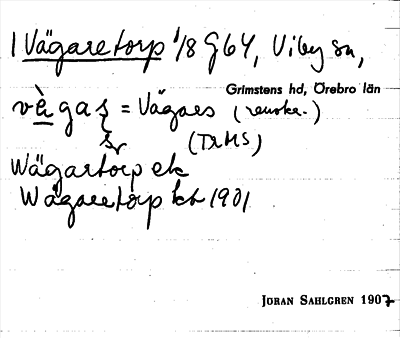 1 Vägaretorp 1/8 G64, Viby sn,
Grimstens hd, Örebro län
vègas = Vägaes (senske.)
sr (TRMS)
Wägartorp ek
Wägaretorp kt 1901
JÖRAN SAHLGREN 1907